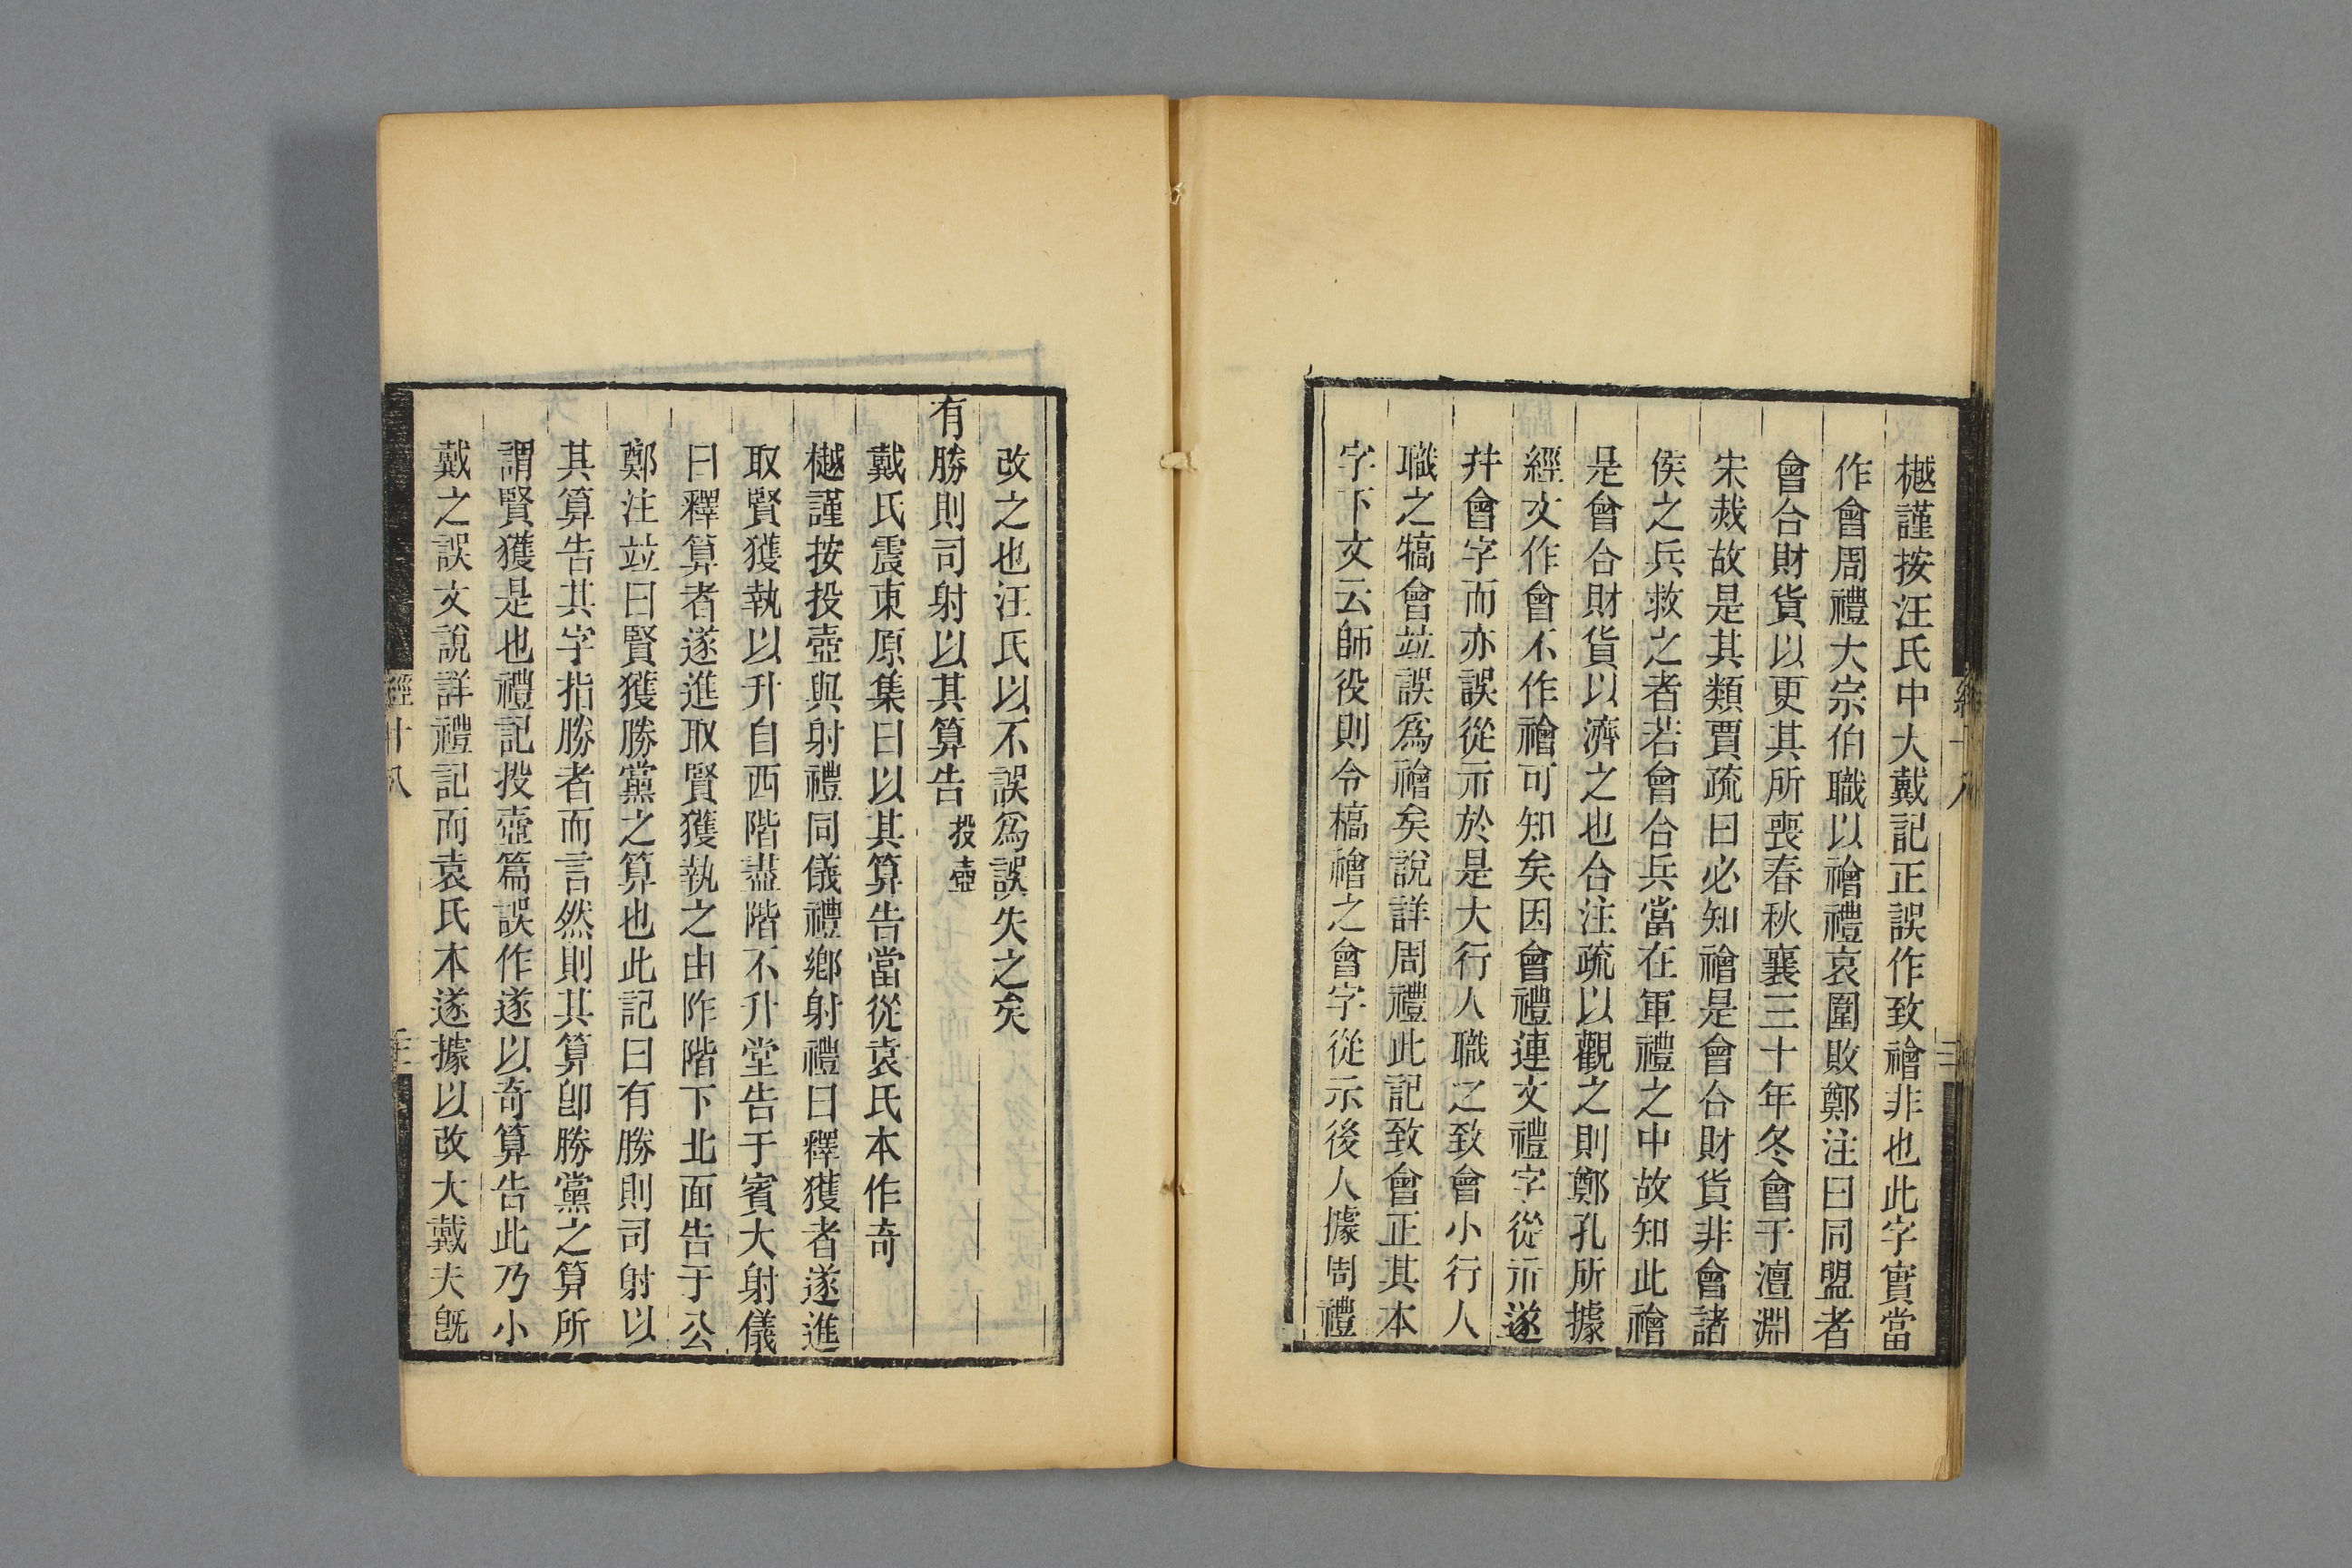 樾謹按汪氏中大戴記正誤作致禬非也此字實當
作會周禮大宗伯職以禬禮哀圍敗鄭注曰同盟者
會合財貨以更其所喪春秋襄三十年冬會于澶淵
宋烖故是其類賈疏曰必知禬是會合財貨非會諸
侯之兵救之者若會合兵當在軍禮之中故知此禬
是會合財貨以濟之也合注疏以觀之則鄭孔所據
經文作會不作禬可知矣因會禮連文禮字從示遂
幷會字而亦誤從示於是大行人職之致會小行人
職之犒會竝誤爲禬矣說詳周禮此記致會正其本
字下文云師役則令槁禬之會字從示後人據周禮
改之也汪氏以不誤爲誤失之矣
有勝則司射以其算告投壺
戴氏震東原集曰以其算告當從袁氏本作奇
樾謹按投壺與射禮同儀禮鄉射禮曰釋獲者遂進
取賢獲執以升自西階盡階不升堂告于賓大射儀
曰釋算者遂進取賢獲執之由阼階下北面告于公
鄭注竝曰賢獲勝黨之算也此記曰有勝則司射以
其算告其字指勝者而言然則其算卽勝黨之算所
謂賢獲是也禮記投壺篇誤作遂以奇算告此乃小
戴之誤文說詳禮記而袁氏本遂據以改大戴夫旣
經十八
三